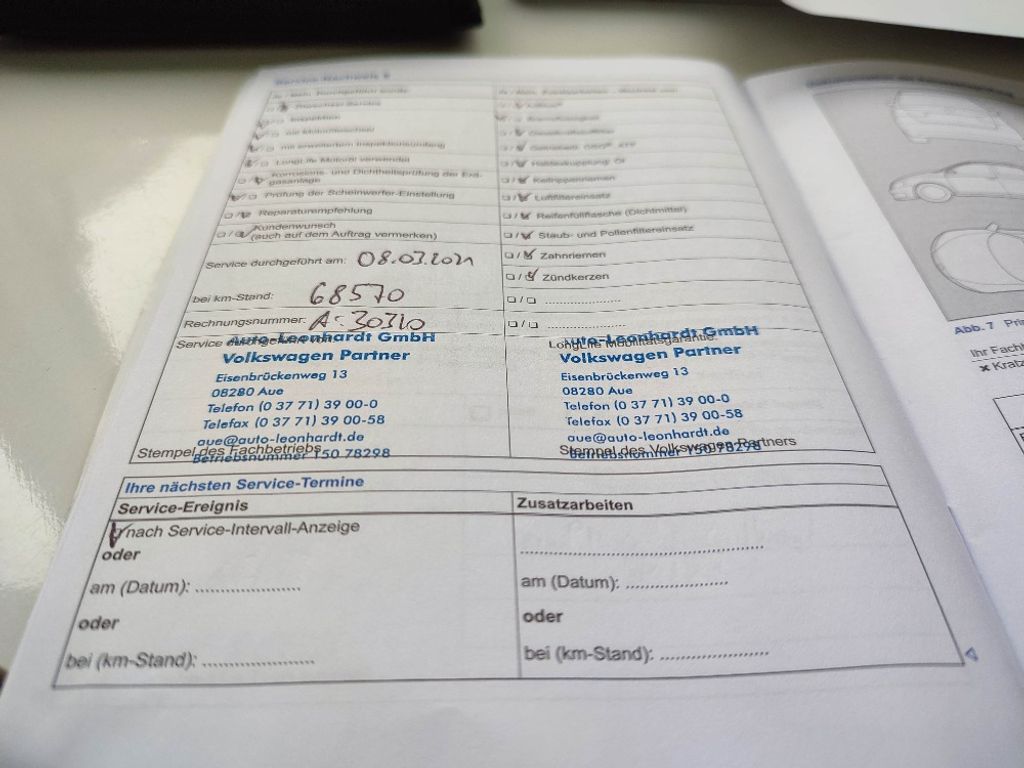 Service-Nachweis 6
Inspektion
mit erweitertem Inspektionsumfang
LongLife Motoröl verwendet
Korrosions- und Dichtheitsprüfung der Erd-
gasanlage
Prüfung der Scheinwerfer-Einstellung
Reparaturempfehlung
Kundenwunsch
(auch auf dem Auftrag vermerken)
Service durchgeführt am: 08.03.2021
bei km-Stand: 68570
Rechnungsnummer: A-30310
Service durchgeführt von:
Auto-Leonhardt GmbH
Volkswagen Partner
Eisenbrückenweg 13
08280 Aue
Telefon (0 37 71) 39 00-0
Telefax (0 37 71) 39 00-58
aue@auto-leonhardt.de
Stempel des Fachbetriebs
Betriebsnummer 150 78298
Haldexkupplung: Öl
Keilrippenriemen
Luftfiltereinsatz
Reifenfüllflasche (Dichtmittel)
Staub- und Pollenfiltereinsatz
Zahnriemen
Zündkerzen
LongLife Mobilitätsgarantie:
Auto-Leonhardt GmbH
Volkswagen Partner
Eisenbrückenweg 13
08280 Aue
Telefon (0 37 71) 39 00-0
Telefax (0 37 71) 39 00-58
aue@auto-leonhardt.de
Stempel des Volkswagen Partners
Betriebsnummer 150 78298
Ihre nächsten Service-Termine
Service-Ereignis
nach Service-Intervall-Anzeige
oder
am (Datum): .....................
oder
bei (km-Stand): .....................
Zusatzarbeiten
am (Datum): .....................
oder
bei (km-Stand): .....................
Abb. 7
Ihr Fach